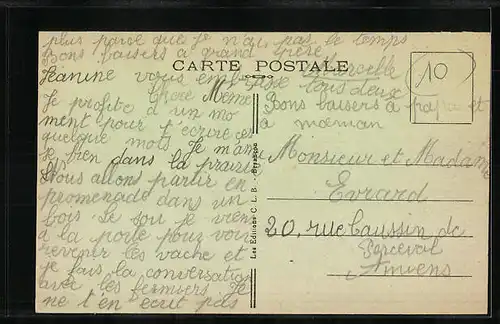 plus parce que je n'ai pas le temps
Bons baisers a grand Mère
CARTE POSTALE
Marcelle
10
Jeanine vous embrasse tous deux
Chere Mémé
Je profite d'un mo
ment pour t'ecrire ces
quelque mots. Je m'amu
se bien dans la prairie
Nous allons partir en
promenade dans un
bois. Le soir je viens
a la porte pour voir
revenir les vache et
je fais la conversation
avec les fermiers. Je
ne t'en ecrit pas
Les Editions C. L. B. - Besançon
Bons baisers à papa et
a maman
Monsieur et Madame
Evrard
20, rue Caussin de
Perceval
Amiens